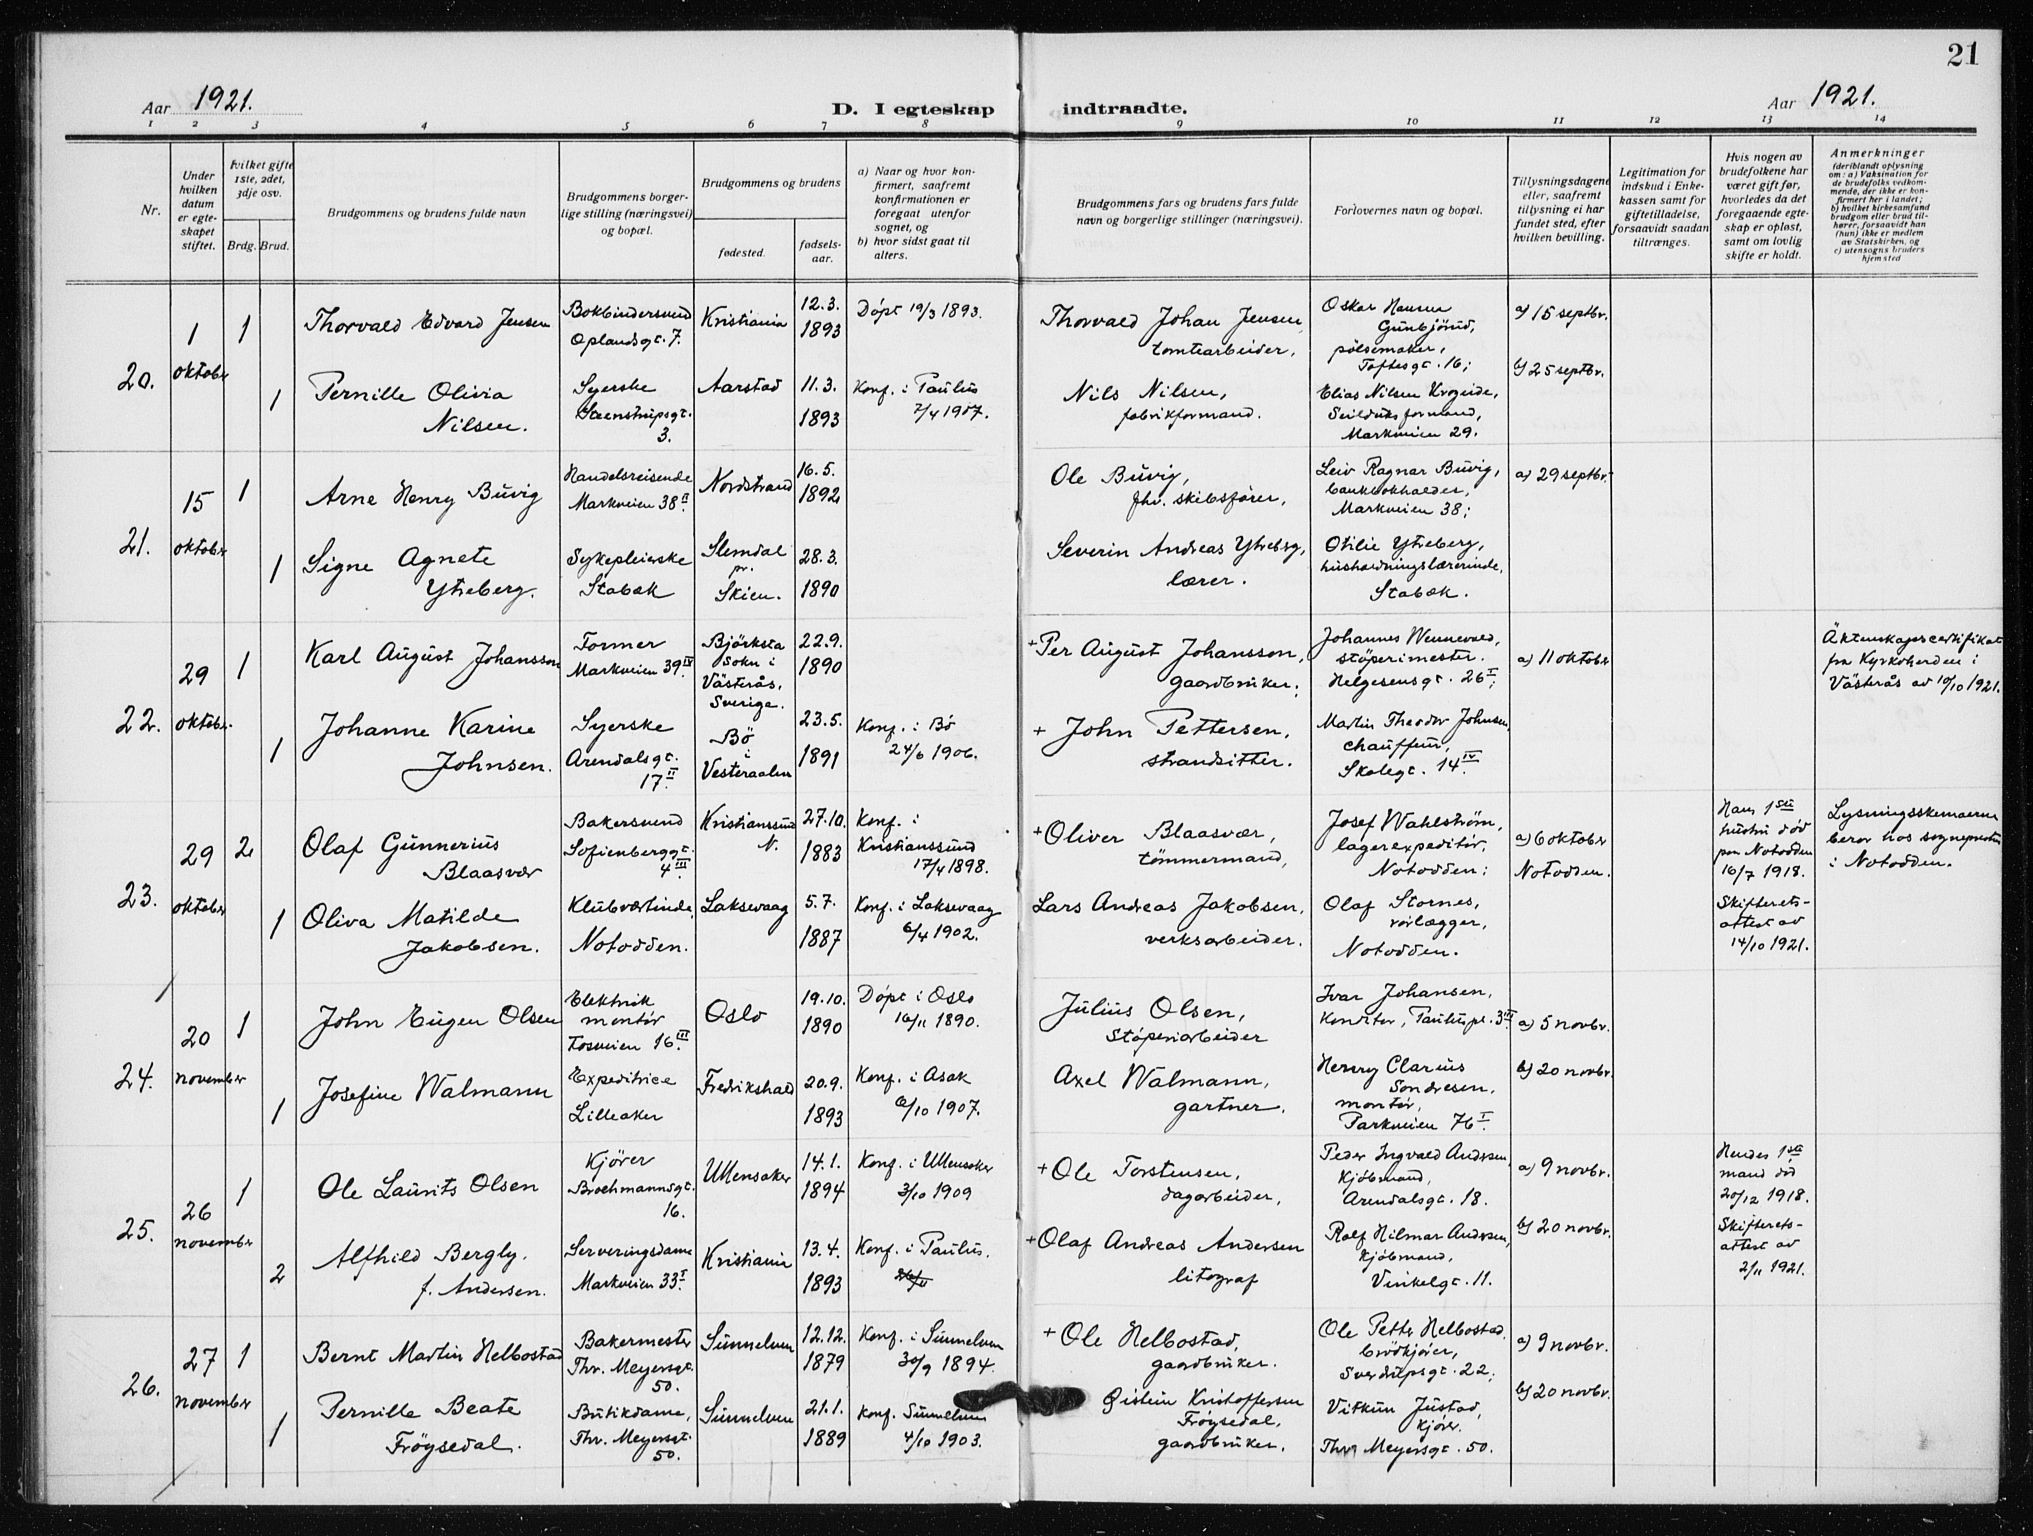 21
Aar 1921.
D. I egteskap indtraadte.
Aar 1921.
1 2 3 4 5 6 7 8 9 10 11 12 13 14
Nr.
Under hvilken datum er egteskapet stiftet.
Hvilket gifte 1ste, 2det, 3dje osv.
Brdg. Brud.
Brudgommens og brudens fulde navn
Brudgommens borgerlige stilling (næringsvei) og bopæl.
Brudgommens og brudens
fødested.
fødselsaar.
a) Naar og hvor konfirmert, saafremt konfirmationen er foregaat utenfor sognet, og
b) hvor sidst gaat til alters.
Brudgommens fars og brudens fars fulde navn og borgerlige stillinger (næringsvei).
Forlovernes navn og bopæl.
Tillysningsdagene eller, saafremt tillysning ei har fundet sted, efter hvilken bevilling.
Legitimation for indskud i Enkekassen samt for giftetilladelse, forsaavidt saadan tiltrænges.
Hvis nogen av brudefolkene har været gift før, hvorledes da det foregaaende egteskap er opløst, samt om lovlig skifte er holdt.
Anmerkninger
(deriblandt oplysning om: a) Vaksination for de brudefolks vedkommende, der ikke er konfirmert her i landet; b) hvilket kirkesamfund brudgom eller brud tilhører, forsaavidt han (hun) ikke er medlem av Statskirken, og c) utensogns bruders hjemsted
20.
1 oktober
1
Thorvald Edvard Jensen
Bokbindersvend
Oplandsgt. 7.
Kristiania
12.3.
1893
Døpt 19/3 1893.
Thorvald Johan Jensen,
tomtearbeider.
Oskar Hansen
Gunbjørud,
pølsemaker,
Toftesgt. 16;
a) 15 septbr.
b) 25 septbr.
1
Pernille Olivia
Nilsen.
Syerske
Steenstrupsgt.
3.
Aarstad
11.3.
1893
Konf. i Paulus
7/4 1907.
Nils Nilsen,
fabrikformand.
Elias Nilsen Krogeide,
Seilduks formand,
Markveien 29.
21.
15 oktober
1
Arne Henry Buvig
Handelsreisende
Markveien 38 II.
Nordstrand
16.5.
1892
Ole Buvig,
fhv. skibsfører,
Leiv Ragnar Buvig,
bankbokholder,
Markveien 38;
a) 29 septbr.
1
Signe Agnete
Ytreberg.
Sykepleierske
Stabæk
Slemdal
pr.
Skien.
28.3.
1890
Severin Andreas Ytrebrg,
lærer.
Otilie Ytreberg,
husholdningslærerinde,
Stabæk.
22.
29 oktober.
1
Karl August Johansson
Former
Markveien 39 IV.
Björksta
Sokn i
Västerås,
Sverige.
22.9.
1890
+ Per August Johansson,
gaardbruker;
Johannes Wennevold,
støperimester.
Helgesensgt. 26 I;
a) 11 oktober
Äktenskapscertifikat
fra Kyrkoherden i
Västerås av 10/10 1921.
1
Johanne Karine
Johnsen.
Syerske
Arendalsgt.
17 II.
Bø
i
Vesteraalen
23.5.
1891
Konf. i Bø
24/6 1906.
+ John Pettersen,
strandsitter.
Martin Theodor Johnsen,
chauffeur,
Skolegt. 14 IV.
23.
29 oktober
2
Olaf Gunnerius
Blaasvær
Bakersvend
Sofienberggt.
4 III.
Kristianssund
N.
27.10.
1883
Konf. i
Kristianssund
17/4 1898.
+ Oliver Blaasvær,
tømmermand,
Josef Wahlstrøm,
lagerexpeditør,
Notodden;
a) 6 oktober
Notodden.
Hans 1ste
hustru død
paa Notodden
16/7 1918.
Skifterets-
attest av
14/10 1921.
Lysningsskemaerne
beror hos sogneprsten
i Notodden.
1
Oliva Matilde
Jakobsen.
Klubværtinde
Notodden.
Laksevaag
5.7.
1887
Konf. i Laksevaag
6/4 1902.
Lars Andreas Jakobsen,
verksarbeider.
Olaf Stornes,
rørlægger,
Notodden.
24.
20 november
1
John Eugen Olsen
Elektrik
montør
Fosveien 16 III.
Oslo
19.10.
1890
Døpt i Oslo
16/11 1890.
Julius Olsen,
Støperiarbeider
Ivar Johansen,
Konditor, Pauluspl. 3 III.
a) 5 novbr.
b) 20 novbr.
1
Josefine Walmann
Expeditrice
Lilleaker
Fredrikshald
20.9.
1893
Konf. i Asak
6/10 1907.
Axel Walmann,
gartner.
Henry Clarius
Sondresen,
montør,
Parkveien 76 I.
25.
26 november
1
Ole Laurits Olsen
Kjører
Brochmannsgt.
16.
Ullensaker
14.1.
1894
Konf. i Ullensaker
3/10 1909
+ Ole Torstensen,
dagarbeider,
Peder Ingvald Andersen
Kjøbmand,
Arendalsgt. 18.
a) 9 novbr.
b) 20 novbr.
Hendes 1ste
mand død
20/12 1918.
Skifterets-
attest av
2/11 1921.
2
Alfhild Bergly.
f. Andersen.
Serveringsdame
Markveien 33 I.
Kristiania
13.4.
1893
Konf. i Paulus.
+ Olaf Andreas Andersen
litograf
Rolf Hilmar Andersen,
Kjøbmand,
Vinkelgt. 11.
26.
27 november
1
Bernt Martin Helbostad
Bakermester
Thv. Meyersgt.
50.
Sunnelven
12.12.
1879
Konf. i Sunnelven
30/9 1894.
+ Ole Helbostad,
gaardbruker.
Ole Petter Helbostad,
brødkjører,
Sverdrupsgt. 22;
a) 9 novbr.
b) 20 novbr.
1
Pernille Beate
Frøysedal.
Butikdame,
Thv. Meyersgt.
50.
Sunnelven
21.1.
1889
Konf. Sunnelven
4/10 1903.
Øistein Kristoffersen
Frøysedal,
gaardbruker.
Vitkun Justad,
Kjører.
Thv. Meyersgt. 50.